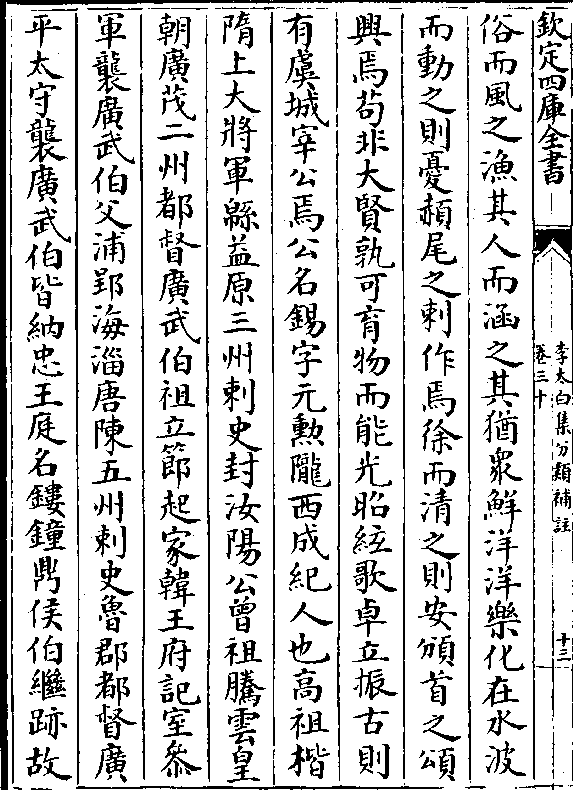 欽定四庫全書
李太白集分類補註
卷三十
十三
俗而風之漁其人而涵之其猶衆鮮洋洋樂化在水波
而動之則憂赬尾之刺作焉徐而清之則安頒首之頌
興焉苟非大賢孰可育物而能光昭絃歌卓立振古則
有虞城宰公焉公名錫字元勲隴西成紀人也高祖楷
隋上大將軍緜益原三州刺史封汝陽公曾祖騰雲皇
朝廣茂二州都督廣武伯祖立節起家韓王府記室叅
軍襲廣武伯父浦郢海淄唐陳五州刺史魯郡都督廣
平太守襲廣武伯皆納忠王庭名鏤鐘鼎侯伯繼跡故